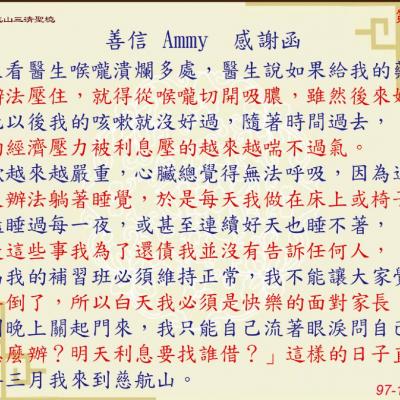 山三清聖境
善信 Ammy 感謝函
看醫生喉嚨潰爛多處，醫生說如果給我的
辦法壓住，就得從喉嚨切開吸膿，雖然後來好
以後我的咳嗽就沒好過，隨著時間過去，
的經濟壓力被利息壓的越來越喘不過氣。
越來越嚴重，心臟總覺得無法呼吸，因為
辦法躺著睡覺，於是每天我做在床上或椅子
睡過每一夜，或甚至連續好天也睡不著，
這些事我為了還債我並沒有告訴任何人，
為我的補習班必須維持正常，我不能讓大家覺
倒了，所以白天我必須是快樂的面對家長
晚上關起門來，我只能自己流著眼淚問自
麼辦？明天利息要找誰借？」這樣的日子直
三月我來到慈航山。
97-1